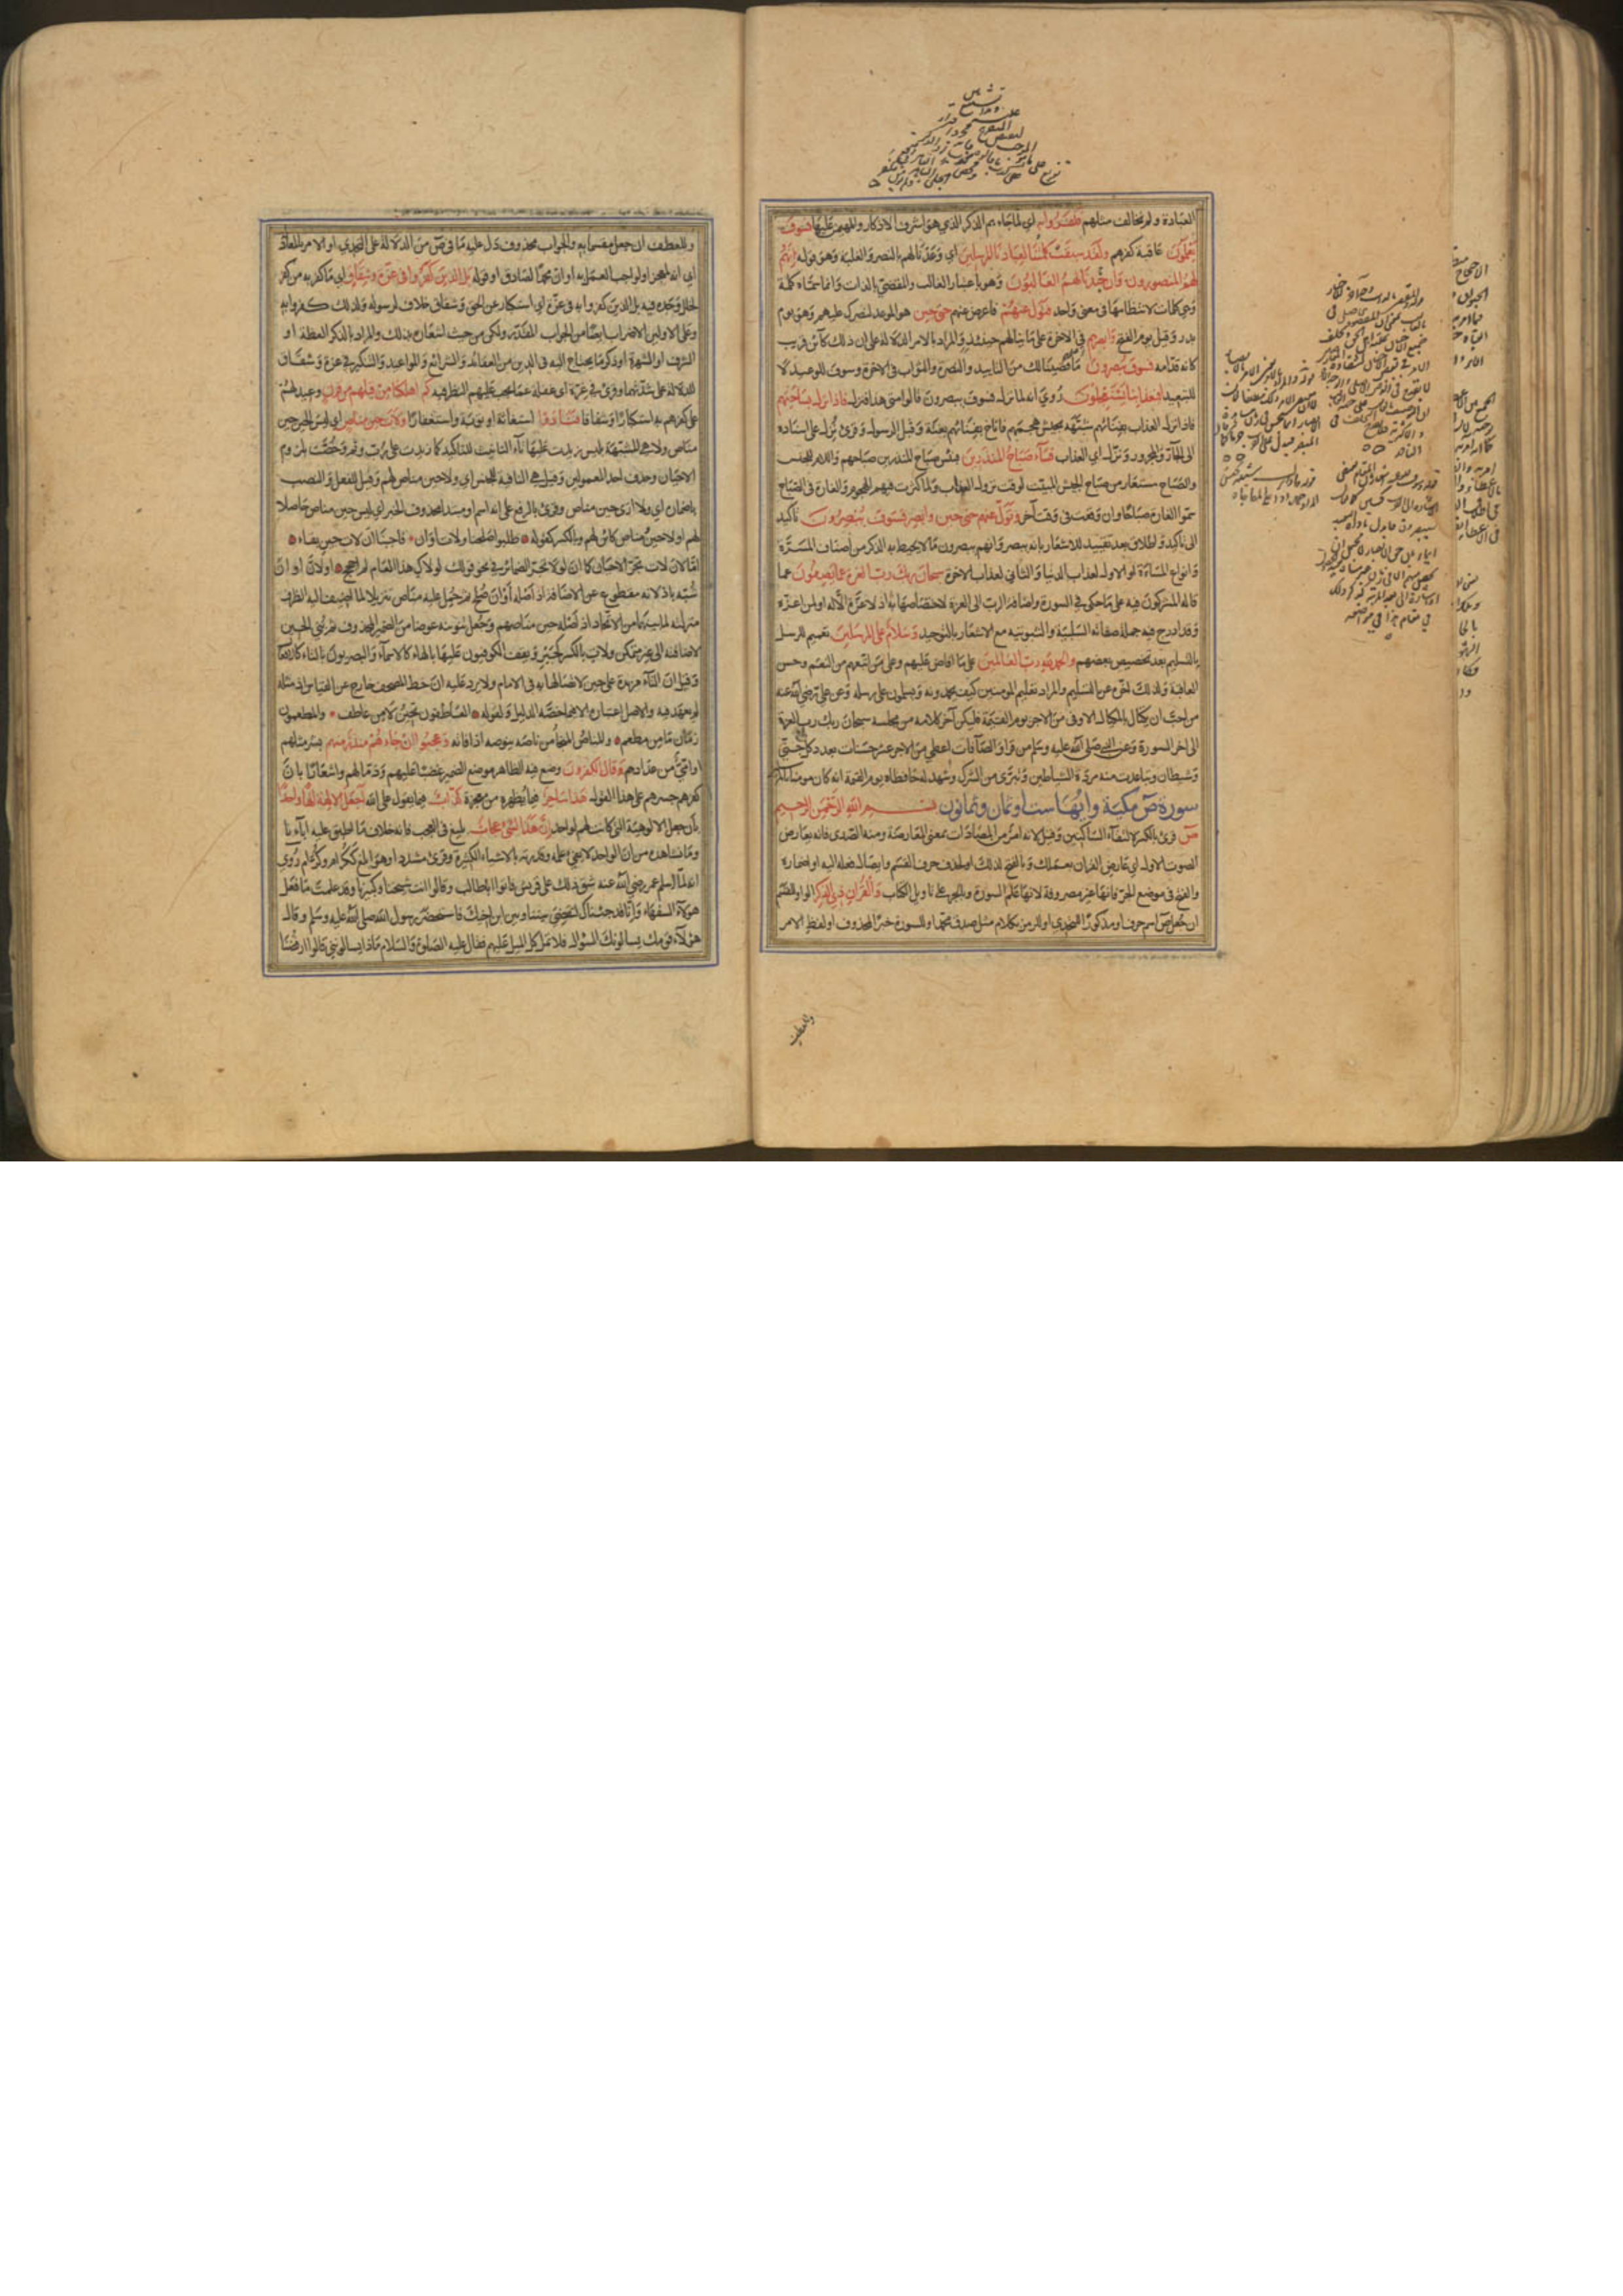 العبادة ولم نخالف مثلهم فكفروا به اي لما جاءهم الذكر الذي هو اشرف الاذكار والمهيمن عليها فسوف
يعلمون عاقبة كفرهم ولقد سبقت كلمتنا لعبادنا المرسلين اي وعدنا لهم بالنصر والغلبة وهو قوله انهم
لهم المنصورون وان جندنا لهم الغالبون وهو باعتبار الغالب والمقضي بالذات وانما سماه كلمة
وهي كلمات لانتظامها في معنى واحد فتول عنهم فاعرض عنهم حتى حين هو الموعد لنصرك عليهم وهو يوم
بدر وقيل يوم الفتح وابصرهم في الاخرة على ما ينالهم حينئذ والمراد بالامر الدلالة على ان ذلك كائن قريب
كانه قدامه فسوف يبصرون ما قضينا لك من التاييد والنصرة والثواب في الاخرة وسوف للوعيد لا
للتبعيد افبعذابنا يستعجلون روي انه لما نزل فسوف يبصرون قالوا متى هذا فنزل فاذا نزل بساحتهم
فاذا نزل العذاب بفنائهم شبهه بجيش هجمهم فاناخ بفنائهم بغتة وقيل الرسول وقرئ نزل على اسناده
الى الجار والمجرور ونزل اي العذاب فساء صباح المنذرين فبئس صباح المنذرين صباحهم واللام للجنس
والصباح مستعار من صباح الجيش المبيت لوقت نزول العذاب ولما كثرت فيهم الهجوم والغارة في الصباح
سموا الغارة صباحا وان وقعت في وقت آخر وتول عنهم حتى حين وابصر فسوف يبصرون تاكيد
الى تاكيد واطلاق بعد تقييد للاشعار بانه يبصر وانهم يبصرون ما لا يحيط به الذكر من اصناف المسرة
وانواع المساءة او الاول لعذاب الدنيا والثاني لعذاب الاخرة سبحان ربك رب العزة عما يصفون عما
قاله المشركون فيه على ما حكى في السورة واضافة الرب الى العزة لاختصاصها به اذ لا عزة الا له او لمن اعزه
وقد ادرج فيه جملة صفاته السلبية والثبوتية مع الاشعار بالتوحيد وسلام على المرسلين تعميم للرسل
بالتسليم بعد تخصيص بعضهم والحمد لله رب العالمين على ما افاض عليهم وعلى من اتبعهم من النعم وحسن
العاقبة ولذلك اخره عن التسليم والمراد تعليم المؤمنين كيف يحمدونه ويسلمون على رسله وعن علي رضي الله عنه
من احب ان يكتال بالمكيال الاوفى من الاجر يوم القيمة فليكن آخر كلامه من مجلسه سبحان ربك رب العزة
الى اخر السورة وعن النبي صلى الله عليه وسلم من قرا والصافات اعطي من الاجر عشر حسنات بعدد كل جني
وشيطان وتباعدت منه مردة الشياطين وتبرئ من الشرك وشهد له حافظاه يوم القيمة انه كان مؤمنا بالمرسلين
سورة ص مكية وآيها ست او ثمان وثمانون بسم الله الرحمن الرحيم
ص قرئ بالكسر لالتقاء الساكنين وقيل لانه امر من المصاداة بمعنى المعارضة ومنه الصدى فانه يعارض
الصوت الاول اي عارض القران بعملك وبالفتح لذلك او لحذف حرف القسم وايصال فعله اليه او اضماره
والفتح في موضع الجر فانها غير مصروفة لانها علم السورة وبالجر على تاويل الكتاب والقران ذي الذكر الواو للقسم
ان جعل ص اسم حرف او مذكورا للتحدي او للرمز بكلام مثل صدق محمد او للسورة خبرا لمحذوف او لفظ الامر
وللعطف
وللعطف ان جعل مقسما به والجواب محذوف دل عليه ما في ص من الدلالة على التحدي او الامر بالمعادلة
اي انه لمعجز او لواجب العمل به او ان محمدا لصادق او قوله بل الذين كفروا في عزة وشقاق اي ما كفر به من كفر
لخلل وجده فيه بل الذين كفروا به في عزة اي استكبار عن الحق وشقاق خلاف لرسوله ولذلك كفروا به
وعلى الاولين الاضراب ايضا من الجواب المقدر ولكن من حيث اشعاره بذلك والمراد بالذكر العظة او
الشرف او الشهرة او ذكر ما يحتاج اليه في الدين من العقائد والشرائع والمواعيد والتنكير في عزة وشقاق
للدلالة على شدتهما وقرئ في غرة اي غفلة عما يجب عليهم النظر فيه كم اهلكنا من قبلهم من قرن وعيد لهم
على كفرهم به استكبارا وشقاقا فنادوا استغاثة او توبة واستغفارا ولات حين مناص اي ليس الحين حين
مناص ولا هي المشبهة بليس زيدت عليها تاء التانيث للتاكيد كما زيدت على رب وثم وخصت بلزوم
الاحيان وحذف احد المعمولين وقيل هي النافية للجنس اي ولا حين مناص لهم وقيل للفعل والنصب
باضماره اي ولا ارى حين مناص وقرئ بالرفع على انه اسم او مبتدا محذوف الخبر اي ليس حين مناص حاصلا
لهم او لا حين مناص كائن لهم وبالكسر كقوله طلبوا صلحنا ولات اوان فاجبنا ان لات حين بقاء
اما لان لات تجر الاحيان كما ان لولا تجر الضمائر في نحو قولك لولاك هذا العام لم احجج او لان اوان
شبه باذ لانه مقطوع عن الاضافة اذ اصله اوان صلح ثم حمل عليه مناص تنزيلا لما اضيف اليه الظرف
منزلته لما بينهما من الاتحاد اذ اصله حين مناصهم وجعل تنوينه عوضا من الضمير المحذوف ثم بني الحين
لاضافته الى غير متمكن ولات بالكسر كجير ويقف الكوفيون عليها بالهاء كالاسماء والبصريون بالتاء كالافعال
وقيل ان التاء مزيدة على حين لاتصالها به في الامام ولا يرد عليه ان خط المصحف خارج عن القياس اذ مثله
لم يعهد فيه والاصل اعتباره الا فيما خصه الدليل ولقوله العاطفون تحين لا من عاطف والمطعمون
زمان ما من مطعم والمناص المنجا من ناصه ينوصه اذا فاته وعجبوا ان جاءهم منذر منهم بشر مثلهم
او امي من عدادهم وقال الكفرون وضع فيه الظاهر موضع الضمير غضبا عليهم وذما لهم واشعارا بان
كفرهم جسرهم على هذا القول هذا ساحر فيما يظهره من معجزة كذاب فيما يقول على الله اجعل الالهة الها واحدا
بان جعل الالوهية التي كانت لهم لواحد ان هذا لشئ عجاب بليغ في العجب فانه خلاف ما اطبق عليه اباؤنا
وما نشاهده من ان الواحد لا يفي علمه وقدرته بالاشياء الكثيرة وقرئ مشددا وهو ابلغ ككرام وكرام روي
انه لما اسلم عمر رضي الله عنه شق ذلك على قريش فاتوا ابا طالب وقالوا انت شيخنا وكبيرنا وقد علمت ما فعل
هؤلاء السفهاء وانا قد جئناك لتقضي بيننا وبين ابن اخيك فاستحضر رسول الله صلى الله عليه وسلم وقال
هؤلاء قومك يسالونك السؤال فلا تمل كل الميل عليهم فقال عليه الصلوة والسلام ماذا يسالونني قالوا ارفضنا